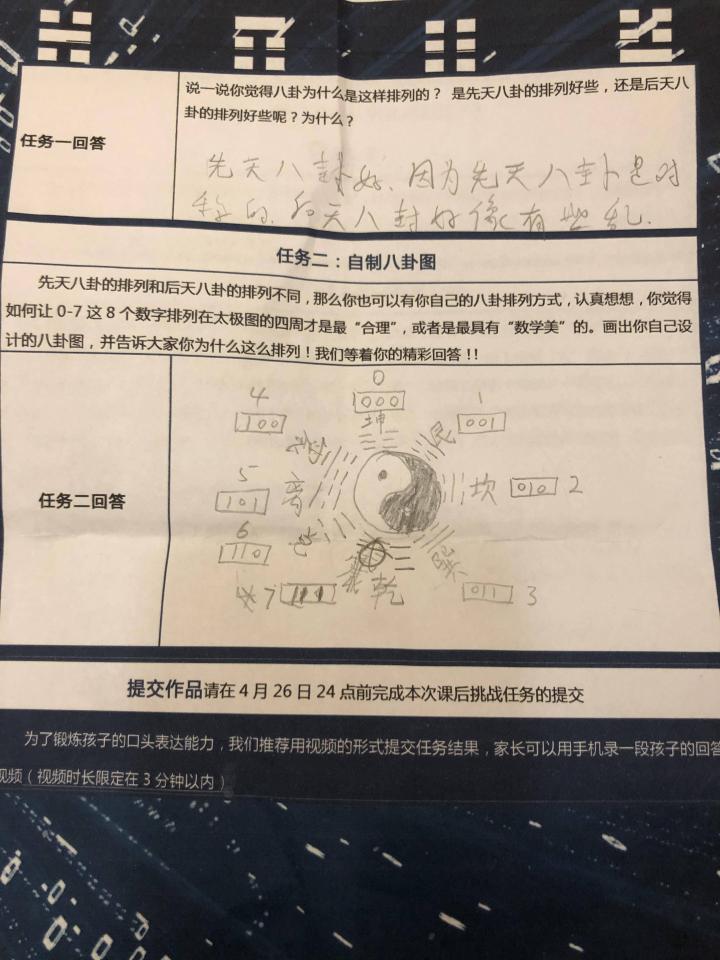 说一说你觉得八卦为什么是这样排列的？ 是先天八卦的排列好些，还是后天八
卦的排列好些呢？为什么？
任务一回答
先天八卦好、因为先天八卦是对
称的.后天八封好像有些乱.
任务二：自制八卦图
先天八卦的排列和后天八卦的排列不同，那么你也可以有你自己的八卦排列方式，认真想想，你觉得
如何让 0-7 这 8 个数字排列在太极图的四周才是最“合理”，或者是最具有“数学美”的。画出你自己设
计的八卦图，并告诉大家你为什么这么排列！我们等着你的精彩回答！！
任务二回答
0
000
坤
4
100
1
001
艮
5
101
离
坎
010
2
6
110
巽
011
3
7
111
乾
提交作品请在 4 月 26 日 24 点前完成本次课后挑战任务的提交
为了锻炼孩子的口头表达能力，我们推荐用视频的形式提交任务结果，家长可以用手机录一段孩子的回答
视频（视频时长限定在 3 分钟以内）